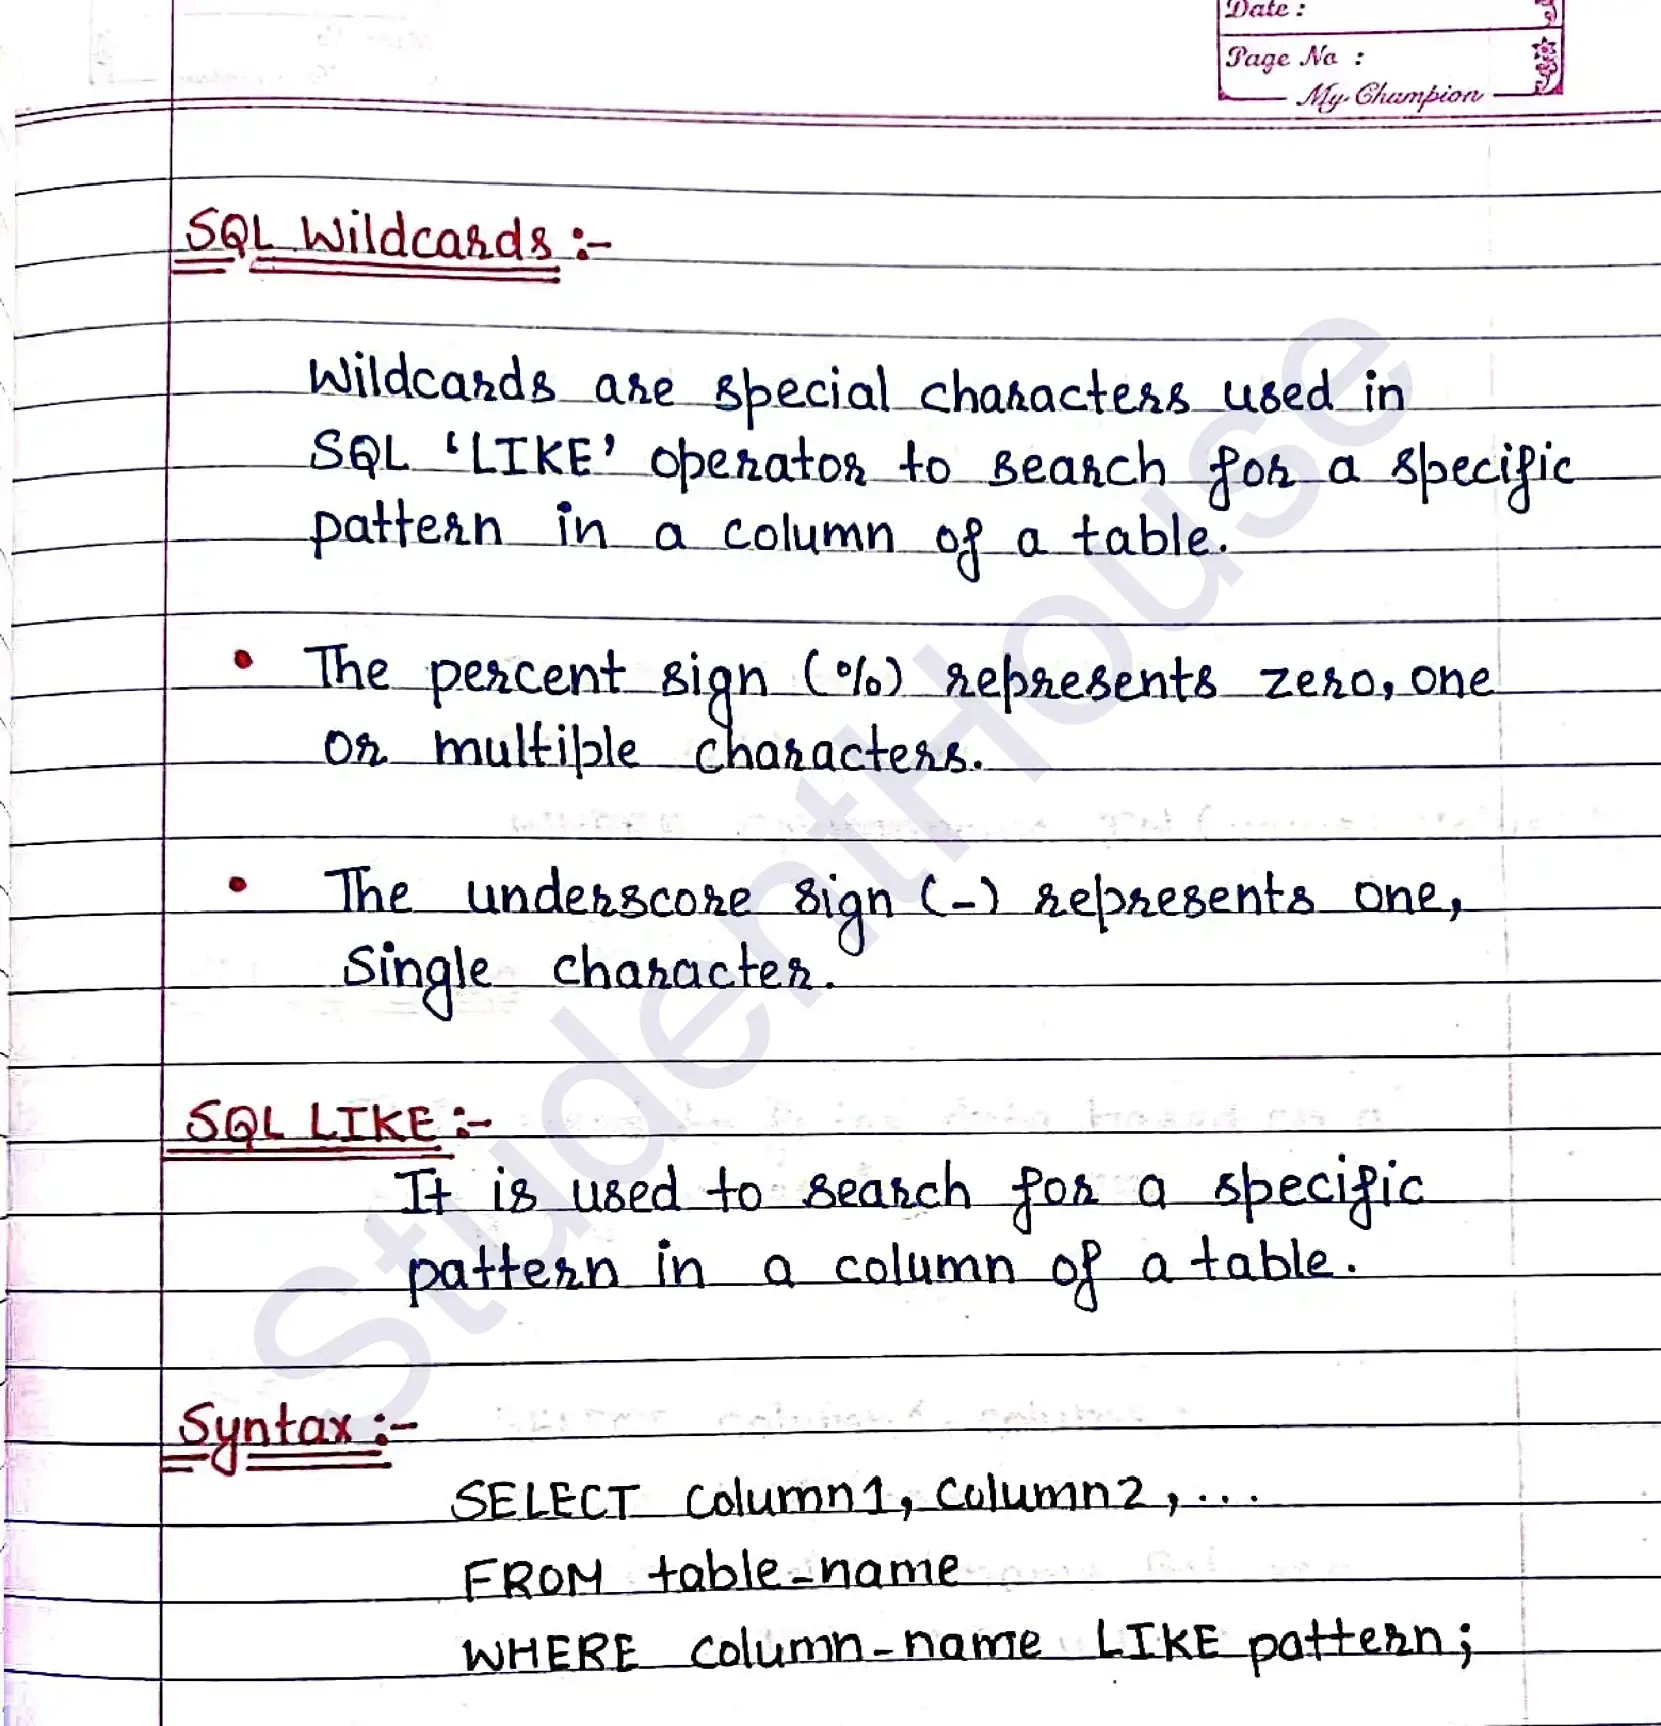 Date :
Page No :
My Champion
SQL Wildcards :-
Wildcards are special characters used in
SQL 'LIKE' operator to search for a specific
pattern in a column of a table.
• The percent sign (%) represents zero, one
or multiple characters.
• The underscore sign (_) represents one,
single character.
SQL LIKE :-
It is used to search for a specific
pattern in a column of a table.
Syntax :-
SELECT column1, column2, ...
FROM table_name
WHERE column_name LIKE pattern;
StudentHouse